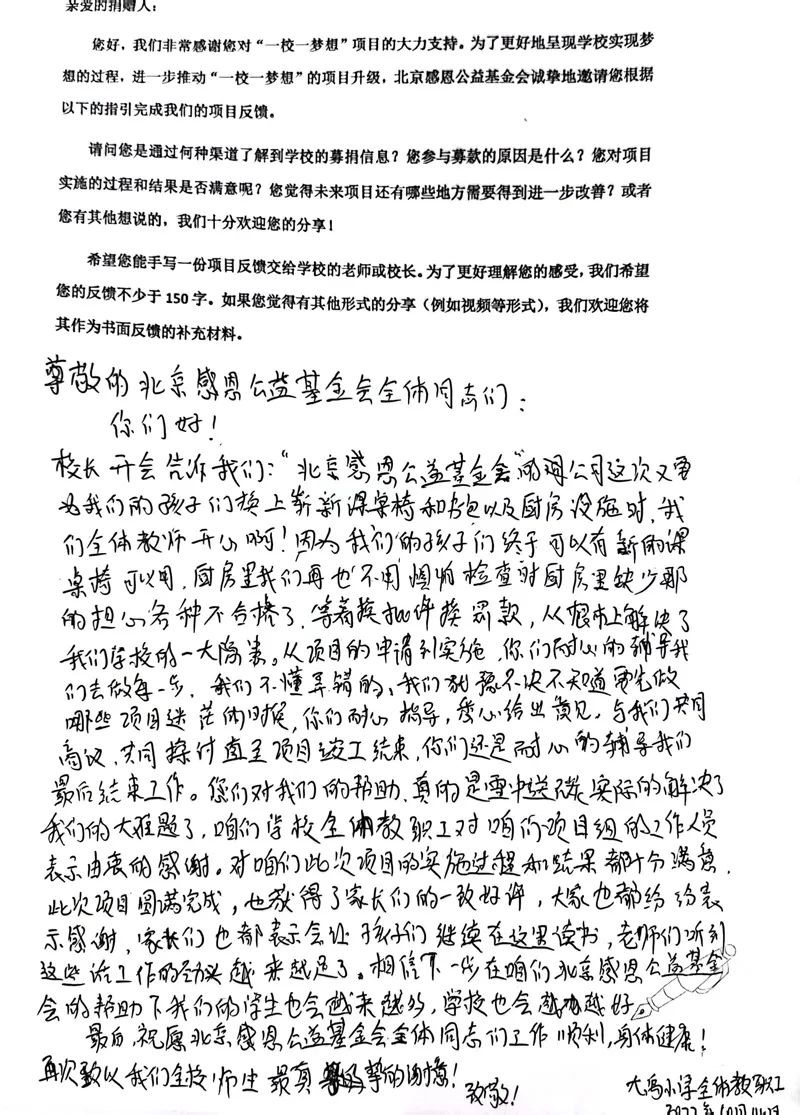 亲爱的捐赠人：
您好，我们非常感谢您对“一校一梦想”项目的大力支持。为了更好地呈现学校实现梦
想的过程，进一步推动“一校一梦想”的项目升级，北京感恩公益基金会诚挚地邀请您根据
以下的指引完成我们的项目反馈。
请问您是通过何种渠道了解到学校的募捐信息？您参与募款的原因是什么？您对项目
实施的过程和结果是否满意呢？您觉得未来项目还有哪些地方需要得到进一步改善？或者
您有其他想说的，我们十分欢迎您的分享！
希望您能手写一份项目反馈交给学校的老师或校长。为了更好理解您的感受，我们希望
您的反馈不少于 150 字。如果您觉得有其他形式的分享（例如视频等形式），我们欢迎您将
其作为书面反馈的补充材料。
尊敬的北京感恩公益基金会全体同志们：
你们好！
校长开会告诉我们：“北京感恩公益基金会”的公司这次又要
为我们的孩子们换上崭新课桌椅和书包以及厨房设施时，我
们全体教师开心啊！因为我们的孩子们终于可以有新的课
桌椅可以用，厨房里我们再也不用惧怕检查时厨房里缺少那
的担心各种不合格了，等着挨批评挨罚款，从根本上解决了
我们学校的一大隐患。从项目的申请到实施，你们耐心的辅导我
们去做每一步，我们不懂弄错的、我们犹豫不决不知道要先做
哪些项目迷茫的时候，你们耐心指导，悉心给出意见，与我们共同
商议，共同探讨直至项目竣工结束，你们还是耐心的辅导我们
最后结束工作。您们对我们的帮助，真的是雪中送碳实际的解决了
我们的大难题了，咱们学校全体教职工对咱们项目组的工作人员
表示由衷的感谢。对咱们此次项目的实施过程和结果都十分满意，
此次项目圆满完成，也获得了家长们的一致好评，大家也都纷纷表
示感谢，家长们也都表示会让孩子们继续在这里读书，老师们听到
这些话工作的劲头越来越足了。相信下一步在咱们北京感恩公益基金
会的帮助下我们的学生也会越来越多，学校也会越办越好。
最后，祝愿北京感恩公益基金会全体同志们工作顺利，身体健康！
再次致以我们全校师生最真挚的谢意！
致敬！
小学全体教职工
2022年10月